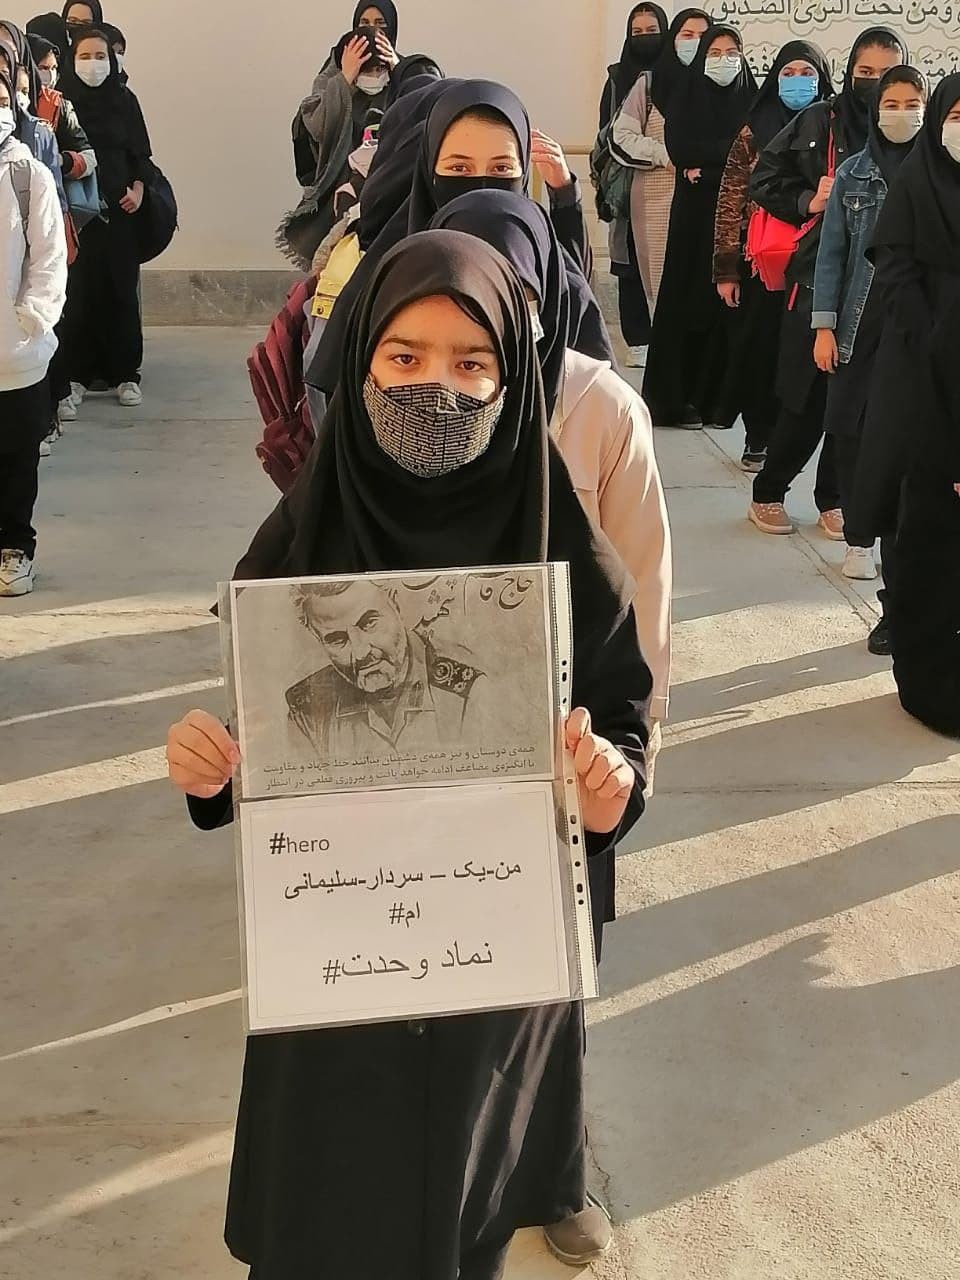 وَمَن تَحتَ الثَّرىٰ الصِّدّیقَ
حاج
شهید
همه‌ی دوستان و نیز همه‌ی دشمنان بدانند خط جهاد و مقاومت
با انگیزه‌ی مضاعف ادامه خواهد یافت و پیروزی قطعی در انتظار
#hero
من-یک – سردار-سلیمانی
ام#
نماد وحدت#